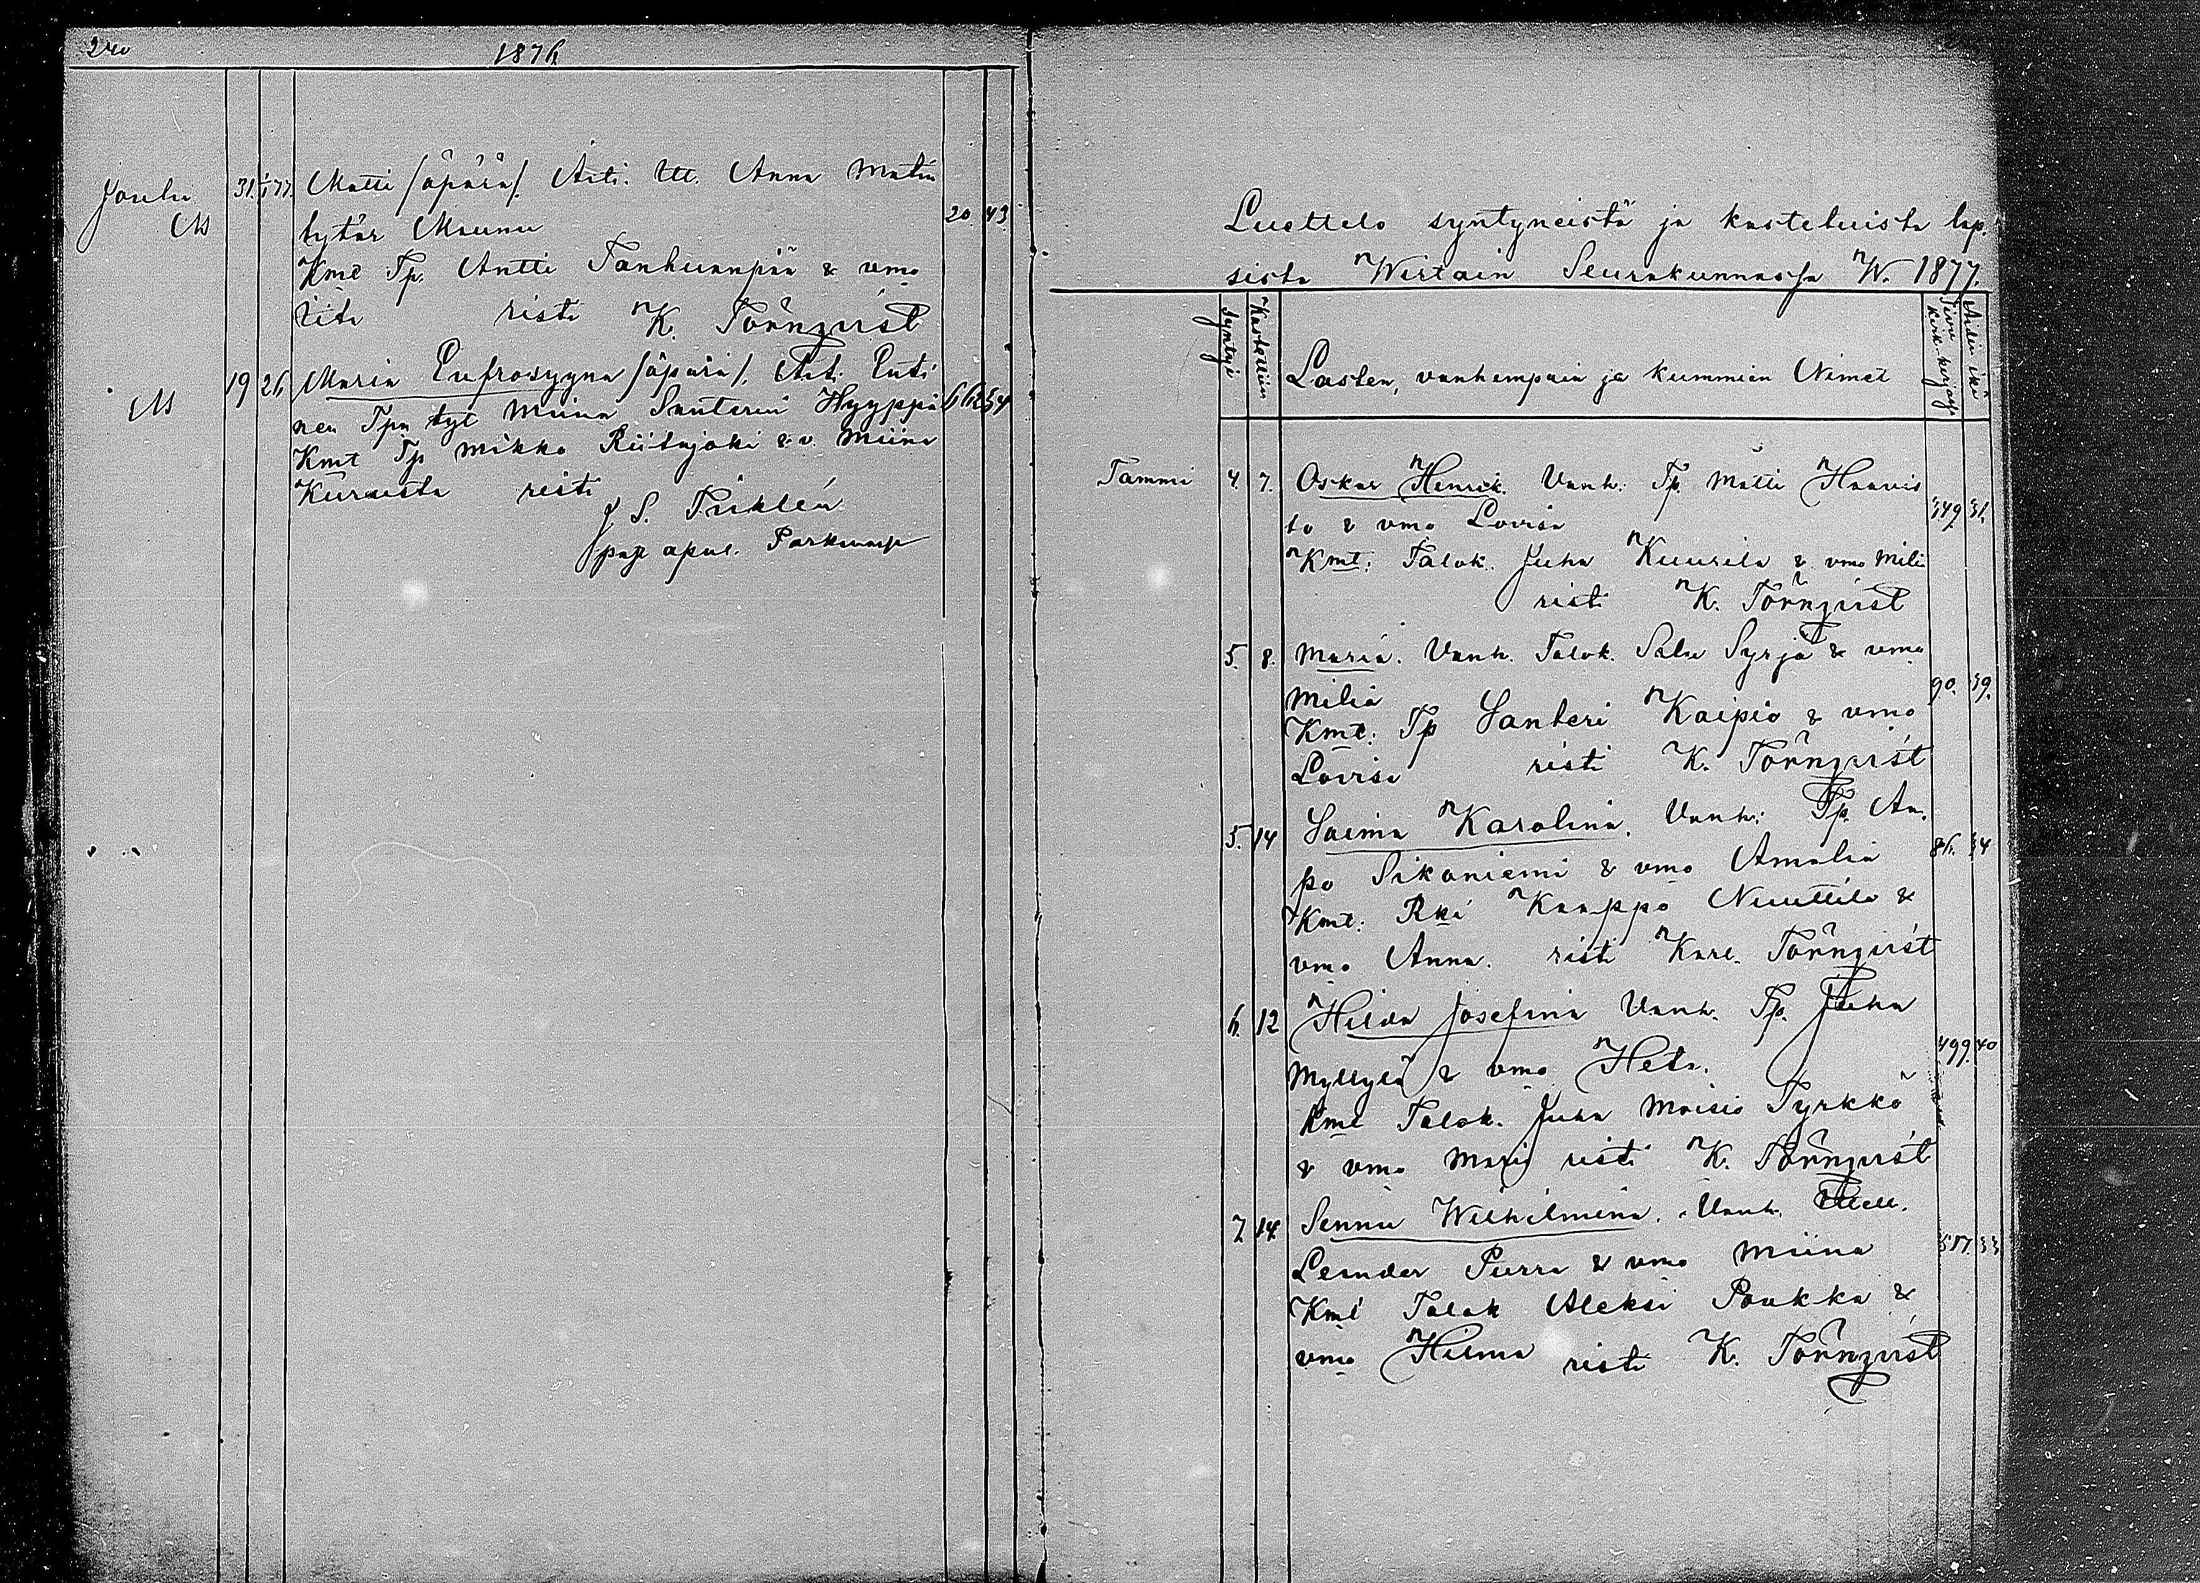 240
1876
Joulu 31. 1/1 77. Matti /äpärä/. Äiti. Itl. Anna Matin
Ab
tytär Maunu 20. 43.
Kmt Tp. Antti Tanhuanpää & vmo
Riita risti K. Törnqvist
Ab 19 26 Maria Eufrosyyna /äpärä/. Äiti. Enti
nen Tpn tyt Miina Santerin Hyyppä 34
Kmt Tp Mikko Riitajoki & v. Miina
Kurusta risti
J. S. Pirklén
pap apul. Parkanossa
Luettelo syntyneistä ja kastetuista lap-
sista Wirtain Seurakunnassa W. 1877.
Syntyi Kastettiin Lasten, vanhempain ja kummien Nimet Sivu kirk. kirjassa Äidin ikä
Tammi 4. 7. Oskar Henrik. Vanh. Tp. Matti Haavis
to & vmo Lovisa 349 31.
Kmt. Talok. Juha Kuurila & vmo Milia
risti K. Törnqvist
5. 8. Maria. Vanh. Talok. Salu Syrjä & vmo
Milia 90. 39.
Kmt. Tp Santeri Kaipio & vmo
Lovisa risti K. Törnqvist
5. 14 Saima Karolina. Vanh. Tp. Aa-
po Sikaniemi & vmo Amalia 86. 34
Kmt. Rki Kaappo Nuuttila &
vmo Anna. risti Karl Törnqvist
6. 12 Hilda Josefina Vanh. Tp. Juha
Myllylä & vmo Heta. 499 40
Kmt Talok. Juha Maisio Tyrkkö
& vmo Maria risti K. Törnqvist
7. 14 Senni Wilhelmina. Vanh. Itell.
Leander Purra & vmo Miina 517. 33
Kmt Talok Aleksi Poukka &
vmo Hilma risti K. Törnqvist